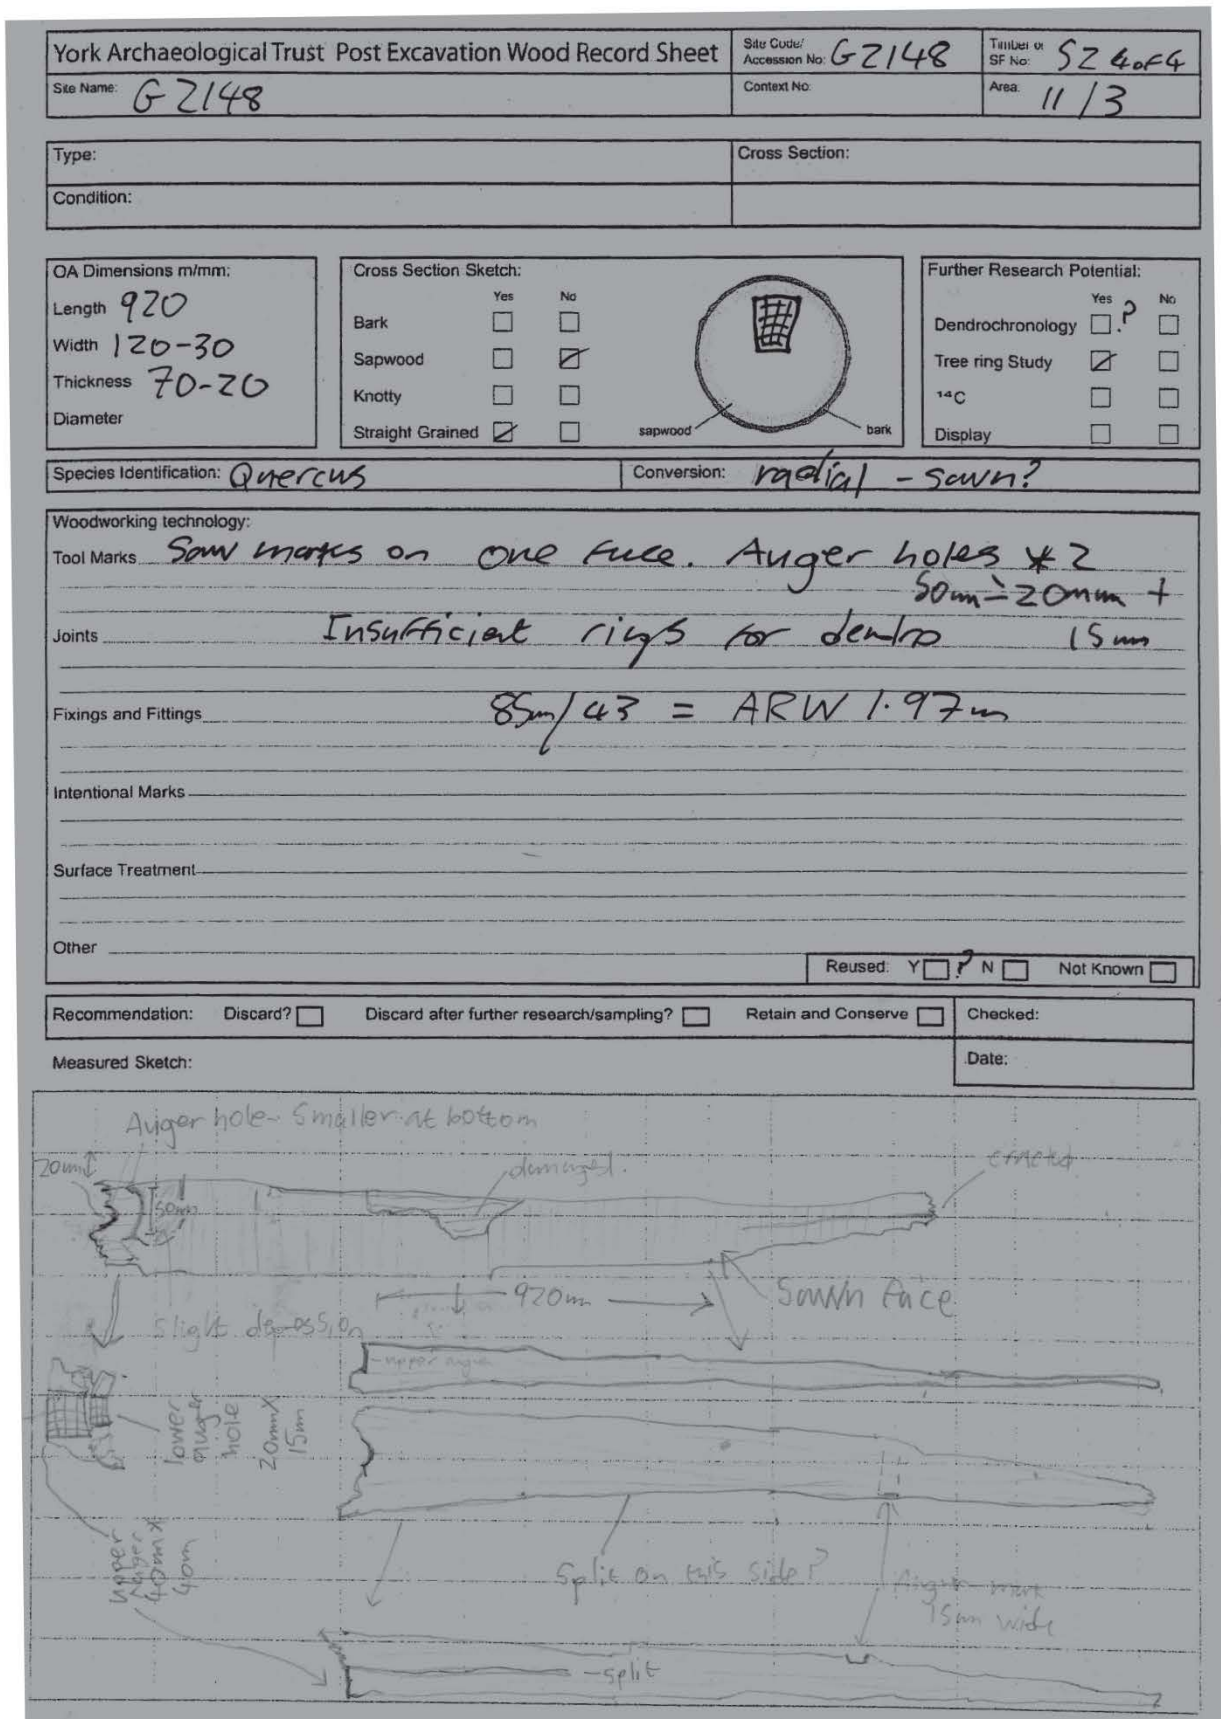 York Archaeological Trust Post Excavation Wood Record Sheet
Site Code/
Accession No: GZ148
Timber or
SF No: SZ 4 of 4
Site Name: GZ148
Context No:
Area: 11/3
Type:
Cross Section:
Condition:
OA Dimensions m/mm:
Length 920
Width 120-30
Thickness 70-20
Diameter
Cross Section Sketch:
Yes No
Bark
Sapwood
Knotty
Straight Grained
sapwood
bark
Further Research Potential:
Yes No
Dendrochronology ?
Tree ring Study
14C
Display
Species Identification: Quercus
Conversion: radial - sawn?
Woodworking technology:
Tool Marks Saw marks on one face. Auger holes * 2
50mm-20mm +
Joints Insufficient rings for dendro 15mm
Fixings and Fittings 85mm/43 = ARW 1.97mm
Intentional Marks
Surface Treatment
Other
Reused: Y ? N Not Known
Recommendation: Discard? Discard after further research/sampling? Retain and Conserve
Checked:
Measured Sketch:
Date:
Auger hole - Smaller at bottom
20mm
damaged.
50mm
920mm
Sawn face
Slight depression
upper auger
lower
auger
hole
20mmX
15mm
upper
auger
40mmX
40mm
Split on this side?
Auger mark
15mm wide
-split